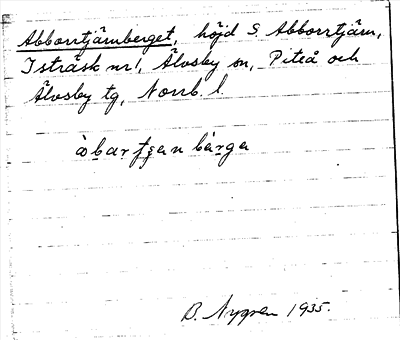 Abborrtjärnberget, höjd S Abborrtjärn,
Isträsk nr 1, Älvsby sn, Piteå och
Älvsby tg, Norrb. l.
B. Nygren 1935.